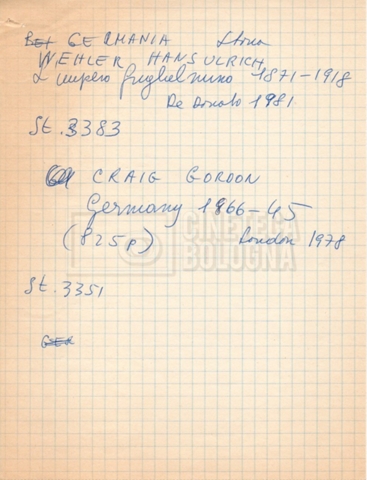 GERMANIA Storia
WEHLER HANSULRICH
L'impero guglielmino 1871-1918
De Donato 1981
St. 3383
CRAIG GORDON
Germany 1866-45
(825p) London 1978
CINETECA
BOLOGNA
St. 3351
GER